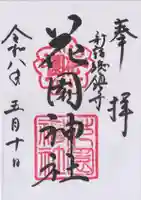 奉拝
新宿総鎮守
花園神社
令和八年
五月十日